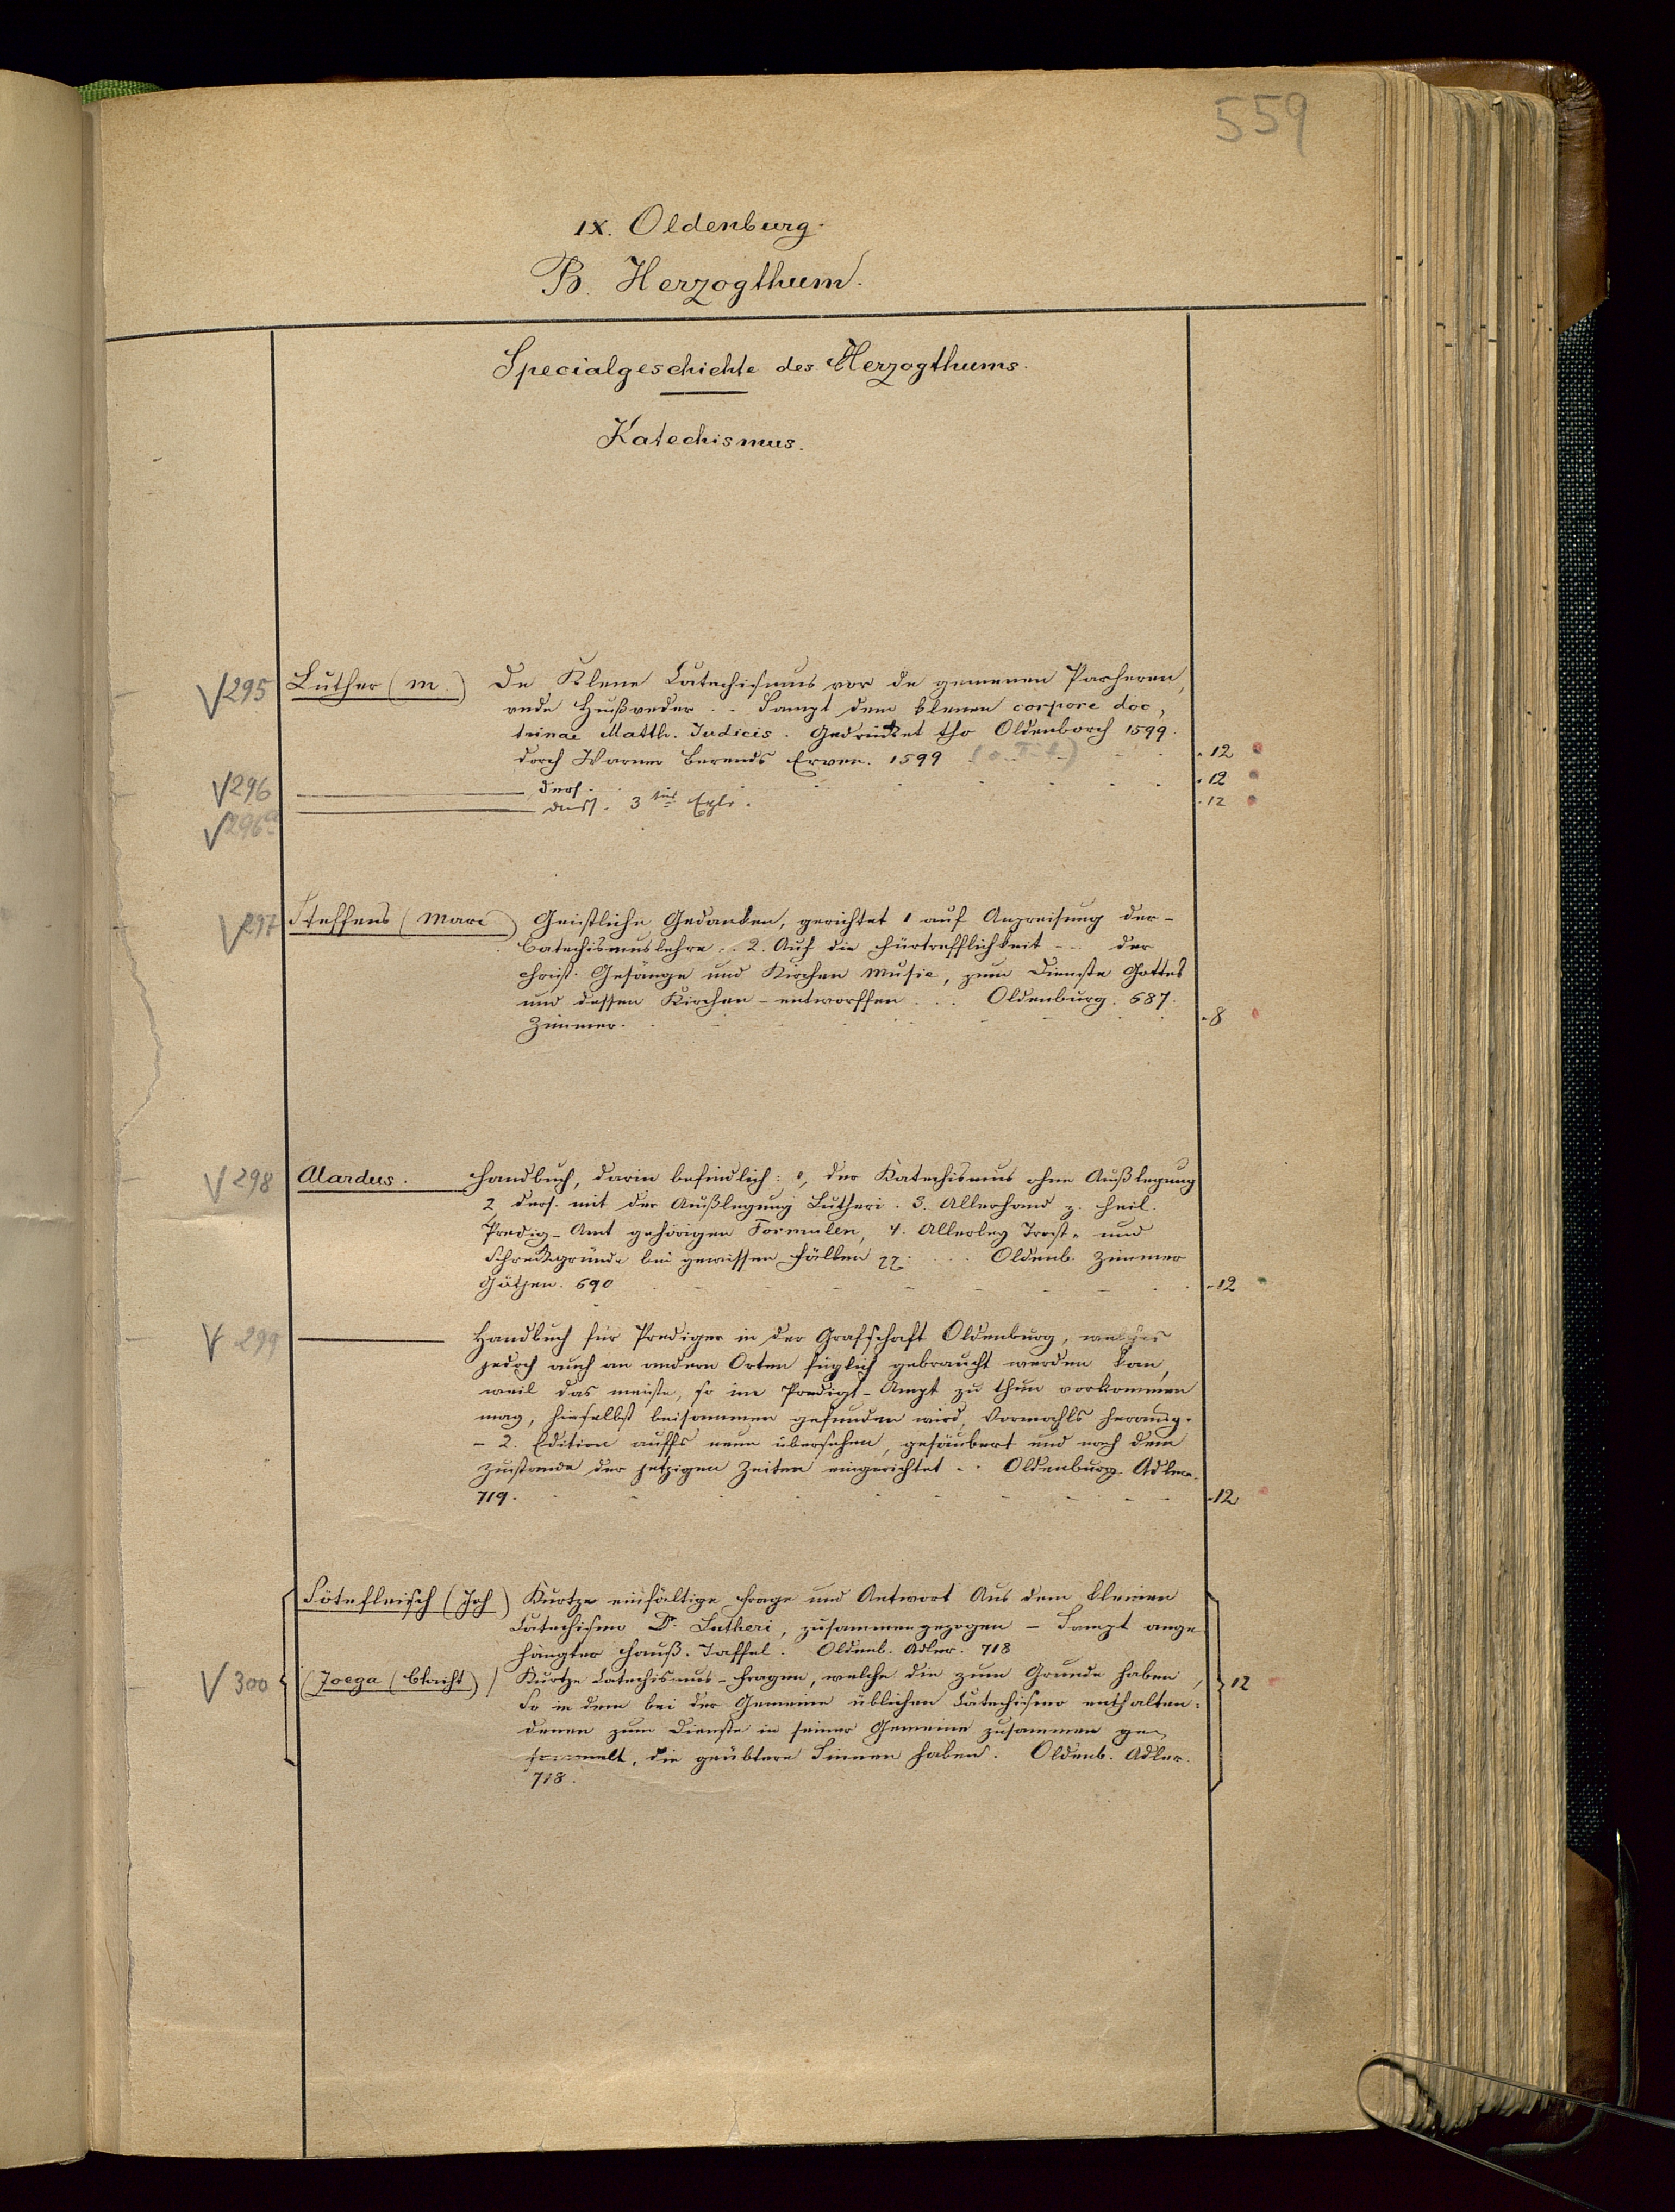 559
IX. Oldenburg.
B. Herzogthum.
Specialgeschichte des Herzogthums.
Katechismus.
V 295 Luther (M.) De Klene Catechismus vor de gemenen Parheren,
vnde Hußveder .. Sampt dem klenen corpore doc,
trinae Matth. Judicis. Gedrücket tho Oldenborch 1599.
dorch Warner Berends Erven. 1599 (o. Tit) - 12
V 296 ders. - 12
V 296a dass. 3tes Expl. - 12
V 297 Steffens (Marc) Geistliche Gedanken, gerichtet 1 auf Anpreisung der-
Catechismuslehre .. 2. Auf die Fürtrefflichkeit - .. der
christ. Gesänge und Kirchen Music, zum Dienste Gottes
und dessen Kirchen - entworffen ... Oldenburg. 687.
Zimmer. - 8
V 298 Alardus. Handbuch, darin befindlich: 1, der Katechismus ohne Außlegung
2 ders. mit der Außlegung Lutheri. 3. Allerhand z. heil.
Predig-Amt gehörigen Formulen, 4. Allerley Trost- und
Schreckgründe bei gewissen Fällen Oldenb. Zimmer
Götjen. 690 - 12
V 299 Handbuch für Prediger in der Grafschaft Oldenburg, welches
jedoch auch an andern Orten füglich gebraucht werden kan,
weil das meiste, so im Predigt-Ampt zu thun vorkommen
mag, hieselbst beisammen gefunden wird, Vormahls herausg.
- 2. Edition auffs neue übersehen, gesäubert und nach dem
Zustande der jetzigen Zeiten eingerichtet .. Oldenburg Adler.
719. - 12
Sötefleisch (Joh) Kurtze einfältige Frage und Antwort Aus dem kleinen
Catechismo Dr. Lutheri, zusammengezogen - Sampt ange
hängter Hauß-Taffel. Oldenb. Adler. 718
V 300 (Joega ) Kurtze Catechismus-Fragen, welche die zum Grunde haben, 12
So in dem bei der Gemeine üblichen Catechismo enthalten:
denen zum Dienste in seiner Gemeine zusammen ge,
sammelt, die geübtere Sinnen haben. Oldenb. Adler.
718.